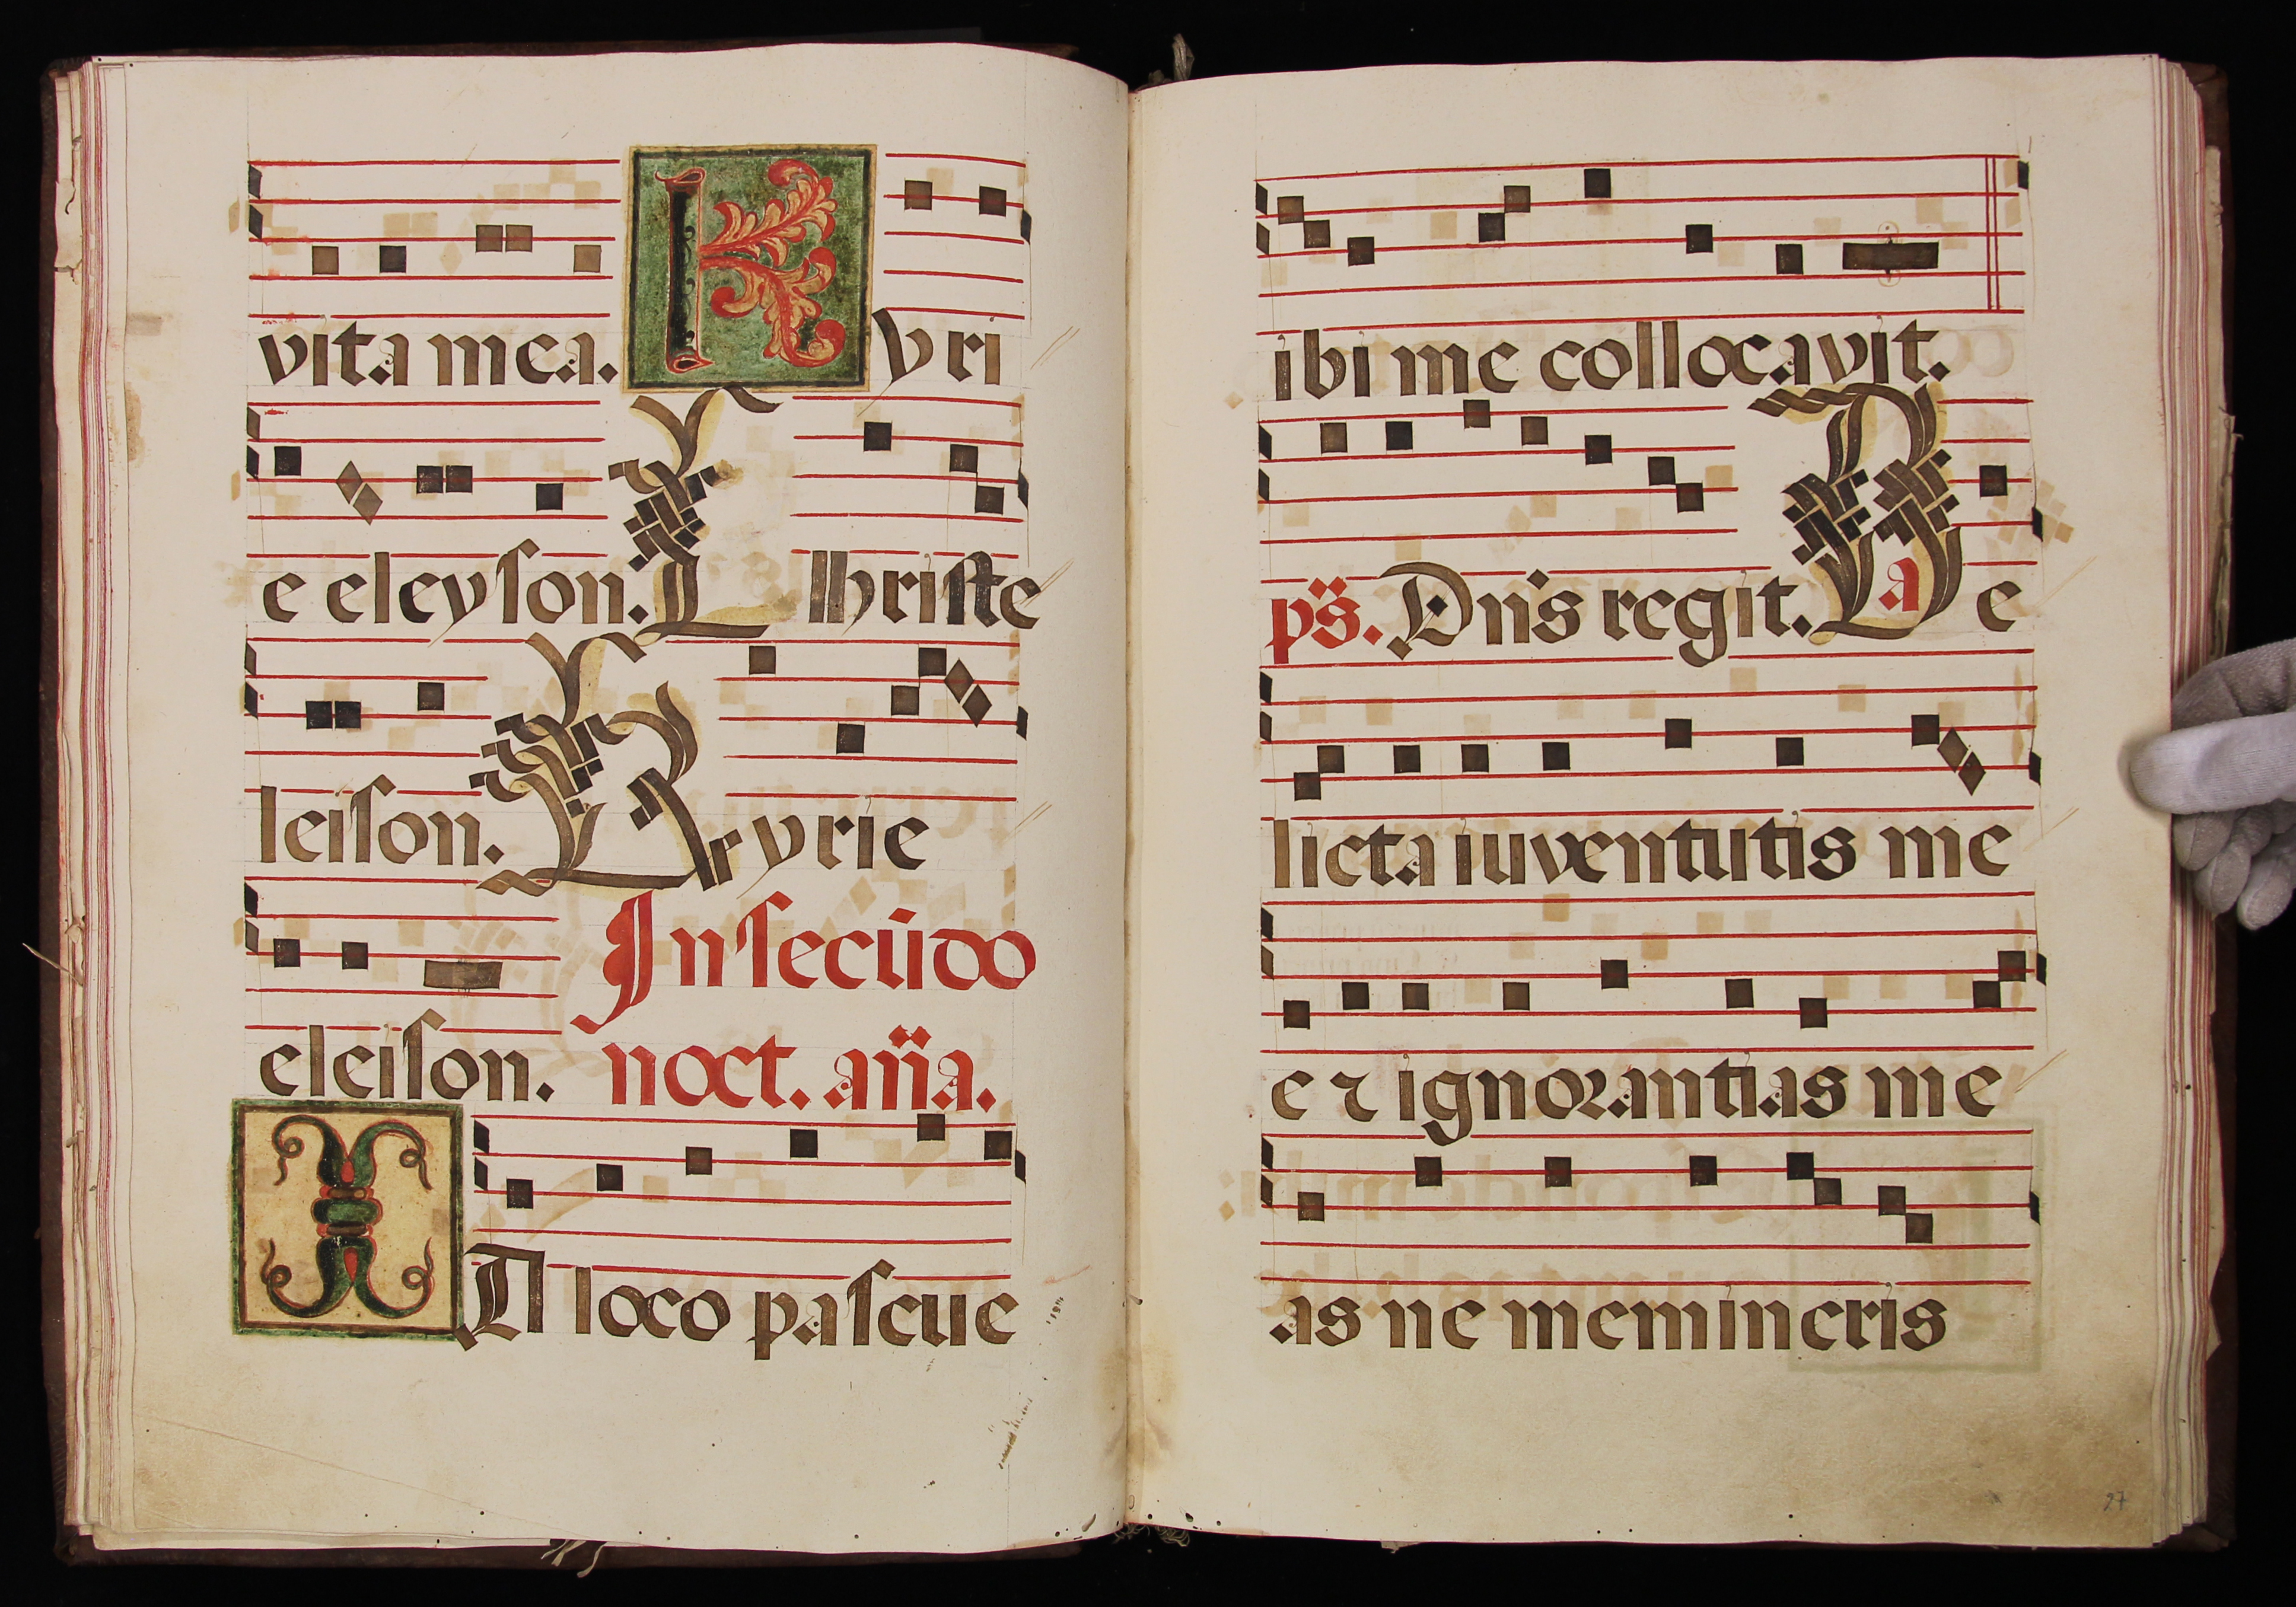 vita mea. Kyri
e eleyson. Christe
leison. Kyrie
eleison. In secūdo
noct. an̄a.
IN loco pascue
ibi me collocavit.
ps̄. Dn̄s regit. a De
licta iuventutis me
e ⁊ ignorantias me
as ne memineris
97